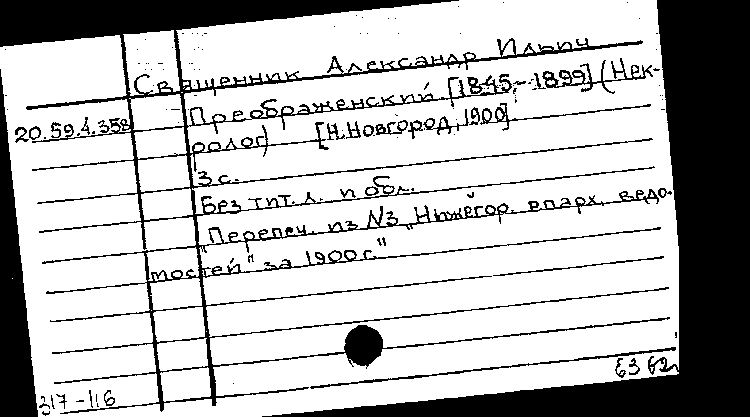 Священник Александр Ильич
Преображенский [1845-1899] (Нек-
20.59.4.358
ролог) [Н.Новгород, 1900].
3 с.
Без тит. л. и обл.
"Перепеч. из N3 "Нижегор. епарх. ведо-
мостей" за 1900 г."
317-116